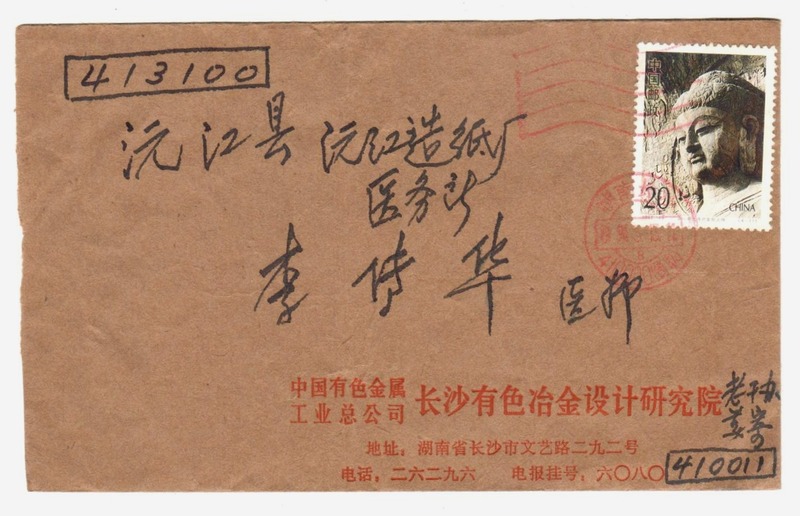 413100
沅江县 沅江造纸厂
医务所
李传华 医师
中国邮政
20
CHINA
中国有色金属
工业总公司
长沙有色冶金设计研究院
老干办
黄寄
地址：湖南省长沙市文艺路二九二号
电话：二六二九六 电报挂号：六〇八〇
410011